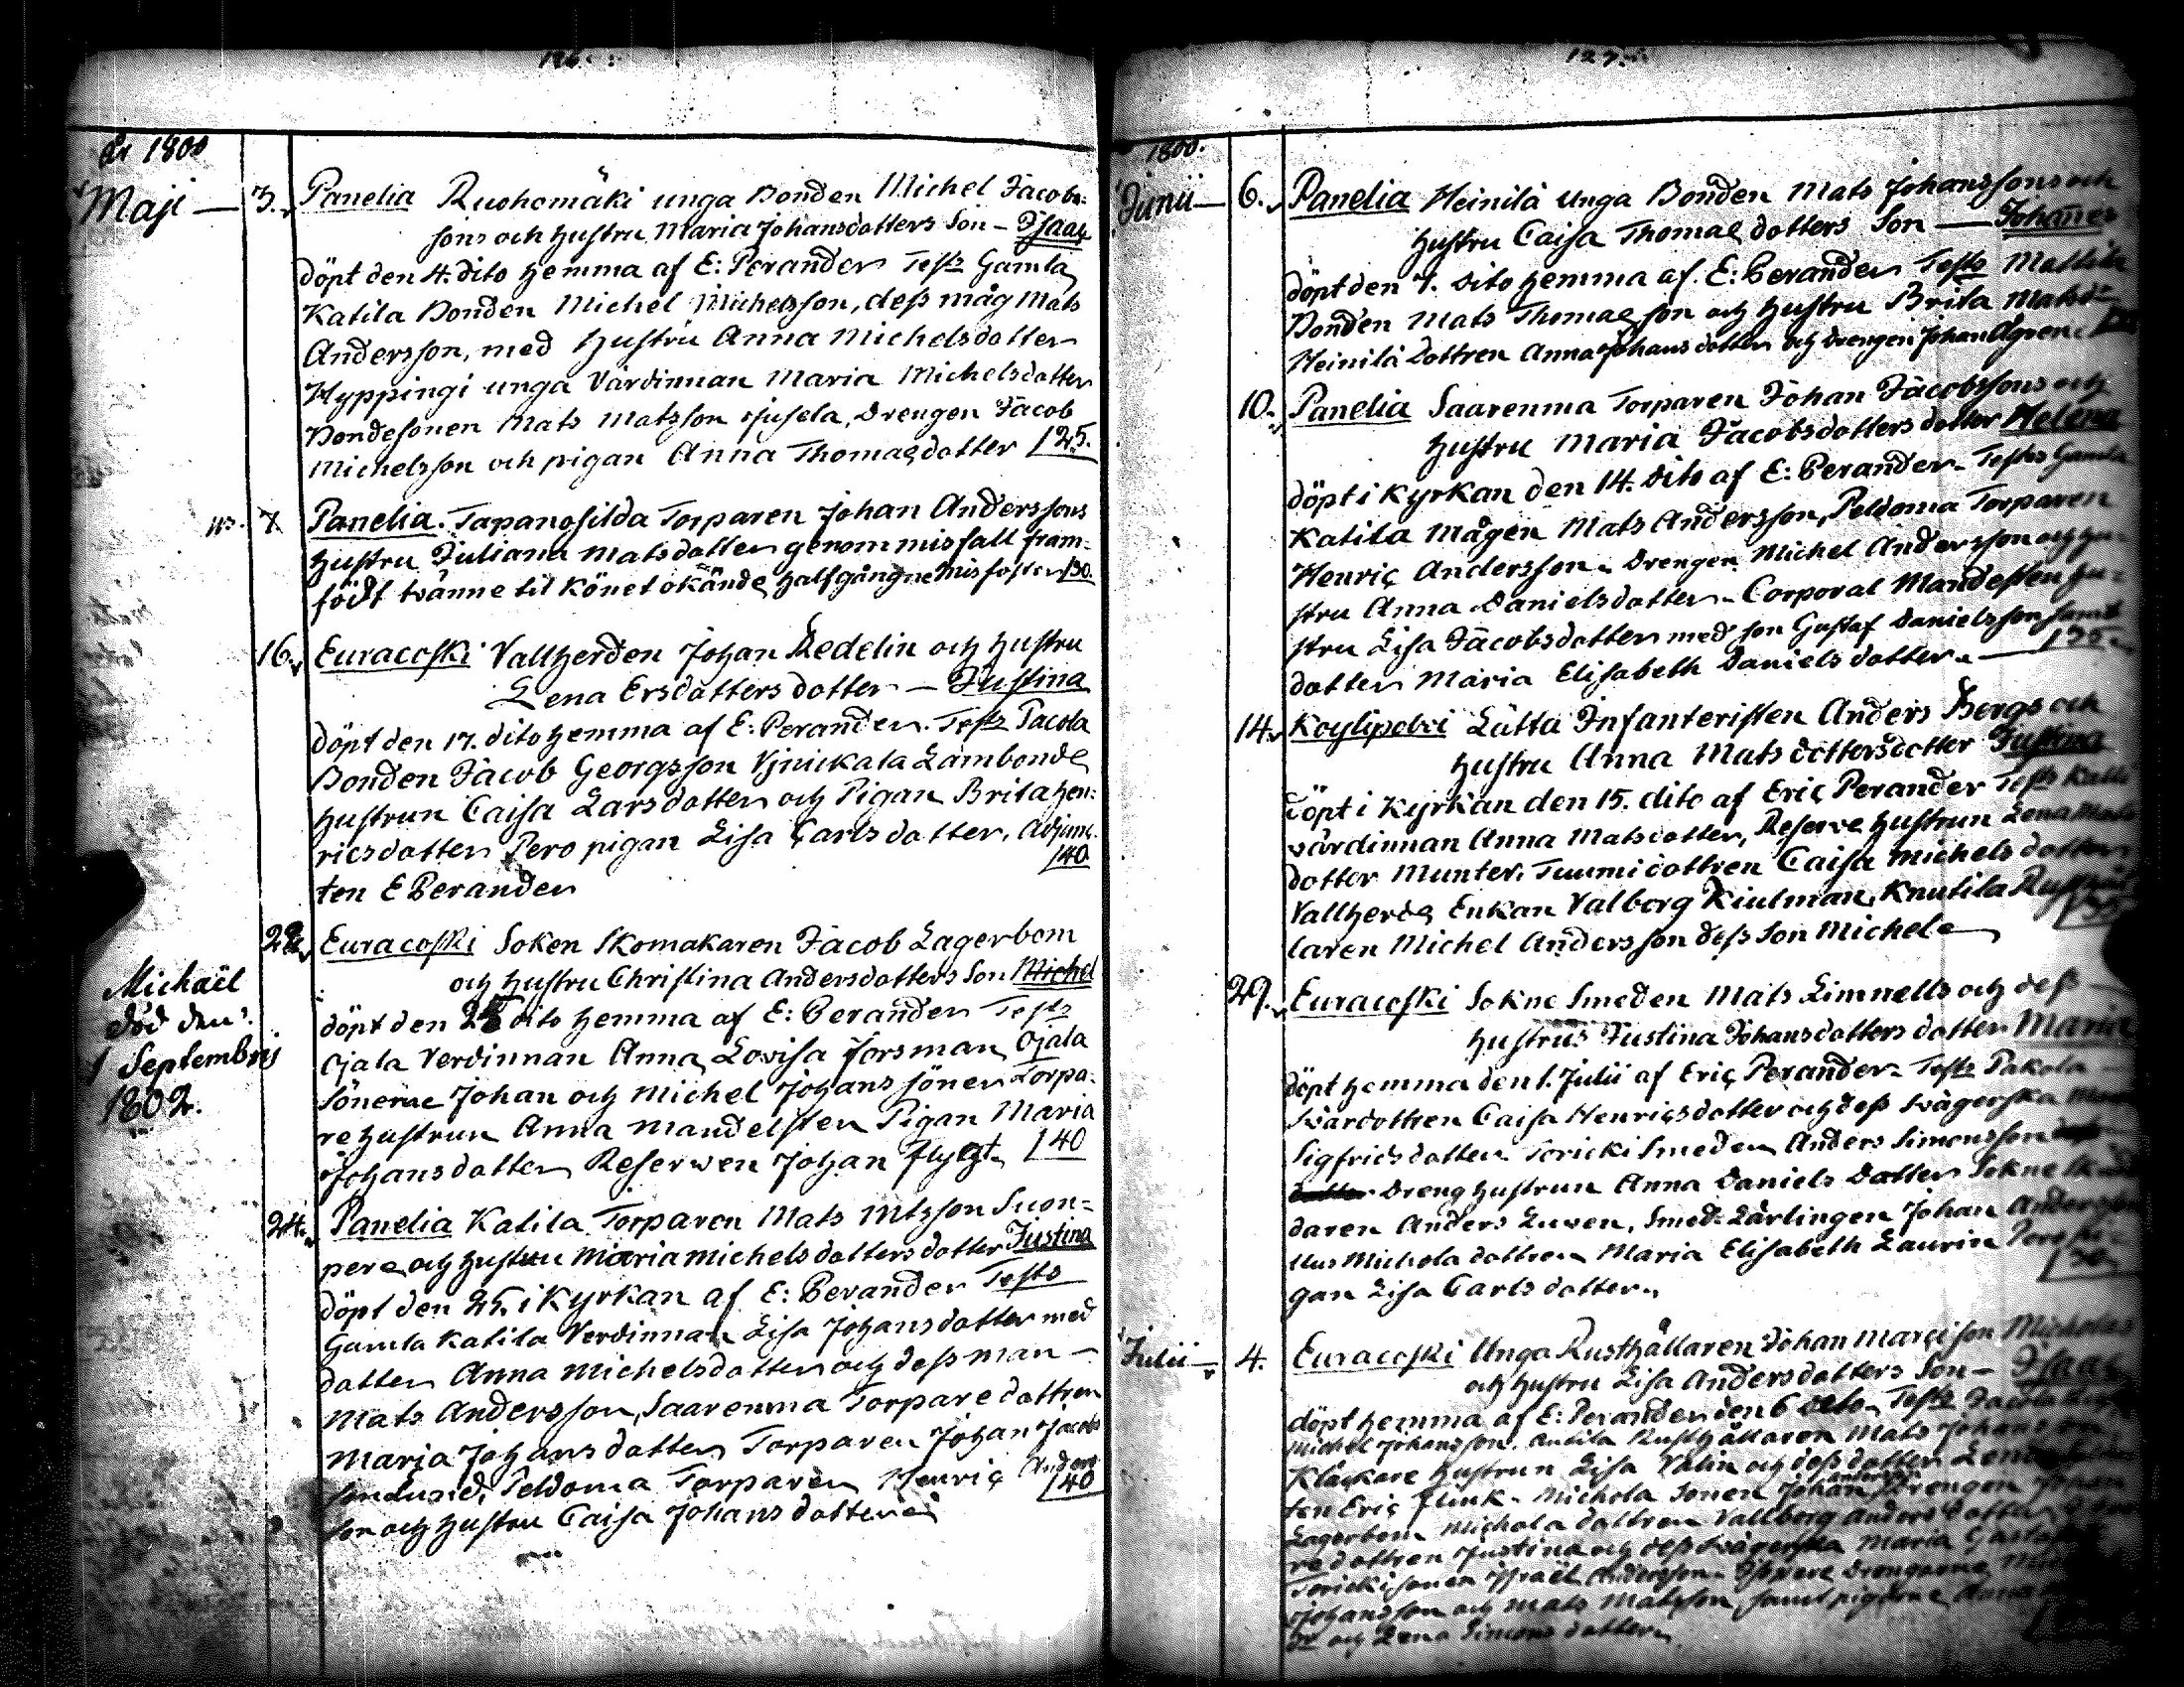 126.
År 1800
Maji — 3. Panelia Ruohomäki unga Bonden Michel Jacobs-
sons och hustru Maria Johansdotters Son — Isaac
döpt den 4. dito hemma af E: Perander Tests Gamla
Katila Bonden Michel Michelsson, dess måg Mats
Andersson, med hustru Anna Michelsdotter
Hyppingi unga Värdinnan Maria Michelsdotter
Bondesonen Mats Matsson Jusela, Drengen Jacob
Michelsson och pigan Anna Thomaedotter /25.
7. Panelia. Tapanosilda Torparen Johan Anderssons
hustru Juliana Matsdotter genom misfall fram-
födt tvänne til Könet okände halfgångne misfoster /30.
16. Euracoski Vallherden Johan Redelin och hustru
Lena Ersdotters dotter — Justina
döpt den 17. dito hemma af E: Perander. Tests Pacola
Bonden Jacob Georgsson Vjnickala Lambonde
hustrun Caisa Larsdotter och Pigan Brita Hen-
ricsdotter Pero pigan Lisa Carlsdotter, Adjunc-
ten E Perander /40
22. Euracoski Soken Skomakaren Jacob Lagerbom
och hustru Christina Andersdotters Son Michel
döpt den 25 dito hemma af E: Perander Tests
Ojala Verdinnan Anna Lovisa Forsman Ojala
Sönerne Johan och Michel Johans söner Torpa-
re hustrun Anna Mandelsten Pigan Maria
Johansdotter Reserven Johan Flygt /40
Michaël
död den
1 Septembris
1802.
24. Panelia Katila Torparen Mats Mtsson Suon-
pere och hustru Maria Michelsdotters dotter Justina
döpt den 25. i Kyrkan af E: Perander Tests
Gamla Katila Verdinnan Lisa Johansdotter med
dotter Anna Michelsdotter och dess man —
Mats Andersson, Saarenma Torpare dottren
Maria Johansdotter Torparen Johan Jacobs
son Lund, Peldoma Torparen Henric Anders
son och hustru Caisa Johansdotter /40
127.
1800.
Junii — 6. Panelia Heinilä unga Bonden Mats Johanssons och
hustru Caisa Thomaedotters Son — Johannes
döpt den 7. dito hemma af E: Perander Tests Mattila
Bonden Mats Thomaesson och hustru Brita Matsdr
Heinilä Dottren Anna Johansdotter och Drengen Johan Agren
10. Panelia Saarenma Torparen Johan Jacobssons och
hustru Maria Jacobsdotters dotter Helena
döpt i Kyrkan den 14. dito af E: Perander. Testes Gamla
Katila Mågen Mats Andersson, Peldoma Torparen
Henric Andersson. Drengen Michel Andersson och hu-
stru Anna Danielsdotter. Corporal Mandelsten hu-
stru Lisa Jacobsdotter med son Gustaf Danielsson samt
dotter Maria Elisabeth Danielsdotter.
14. Koylipolvi Lätta Infanteristen Anders Bergs och
hustru Anna Matsdotters dotter Justina
döpt i Kyrkan den 15. dito af Eric Perander Tests Katti
värdinnan Anna Matsdotter, Reserve hustrun Lena Mats
dotter Munter. Tuumi dottren Caisa Michelsdotter
Vallherde Enkan Valborg Kiulman, Knutila Rusthål
laren Michel Andersson dess Son Michel
29. Euracoski Sokne Smeden Mats Limnells och dess
hustrus Justina Johansdotters dotter Maria
döpt hemma den 1. Julii af Eric Perander. Tests Pakola
Svärdottren Caisa Henricsdotter och dess svägerska
Sigfridsdotter. Toricki Smeden Anders Simonsson
Dreng hustrun Anna Daniels Dotter Sokne Skräd
daren Anders Luren, Smeds Lärlingen Johan Andersson
Michola dottren Maria Elisabeth Laurin Pero pi-
gan Lisa Carlsdotter.
Julii — 4. Euracoski Unga Rusthållaren Johan Marcisson Micholas
och hustru Lisa Andersdotters Son — Isaac
döpt hemma af E: Perander den 6 dito. Tests
Michel Johansson. Antila Rusthållaren Mats Johansson
Klåckare hustrun Lisa Valin och dess dotter Lena
ten Eric Flink. Michola Sonen Johan Andersson Drengen Johan
Lagerbom Michola dottren Vallborg Andersdotter
re dottren Justina och dess svägerska Maria Gustafs
Toricki sonen Israël Andersson. Drengarne
Johansson och Mats Matsson, samt pigorne Anna
och Lena Simonsdotter.